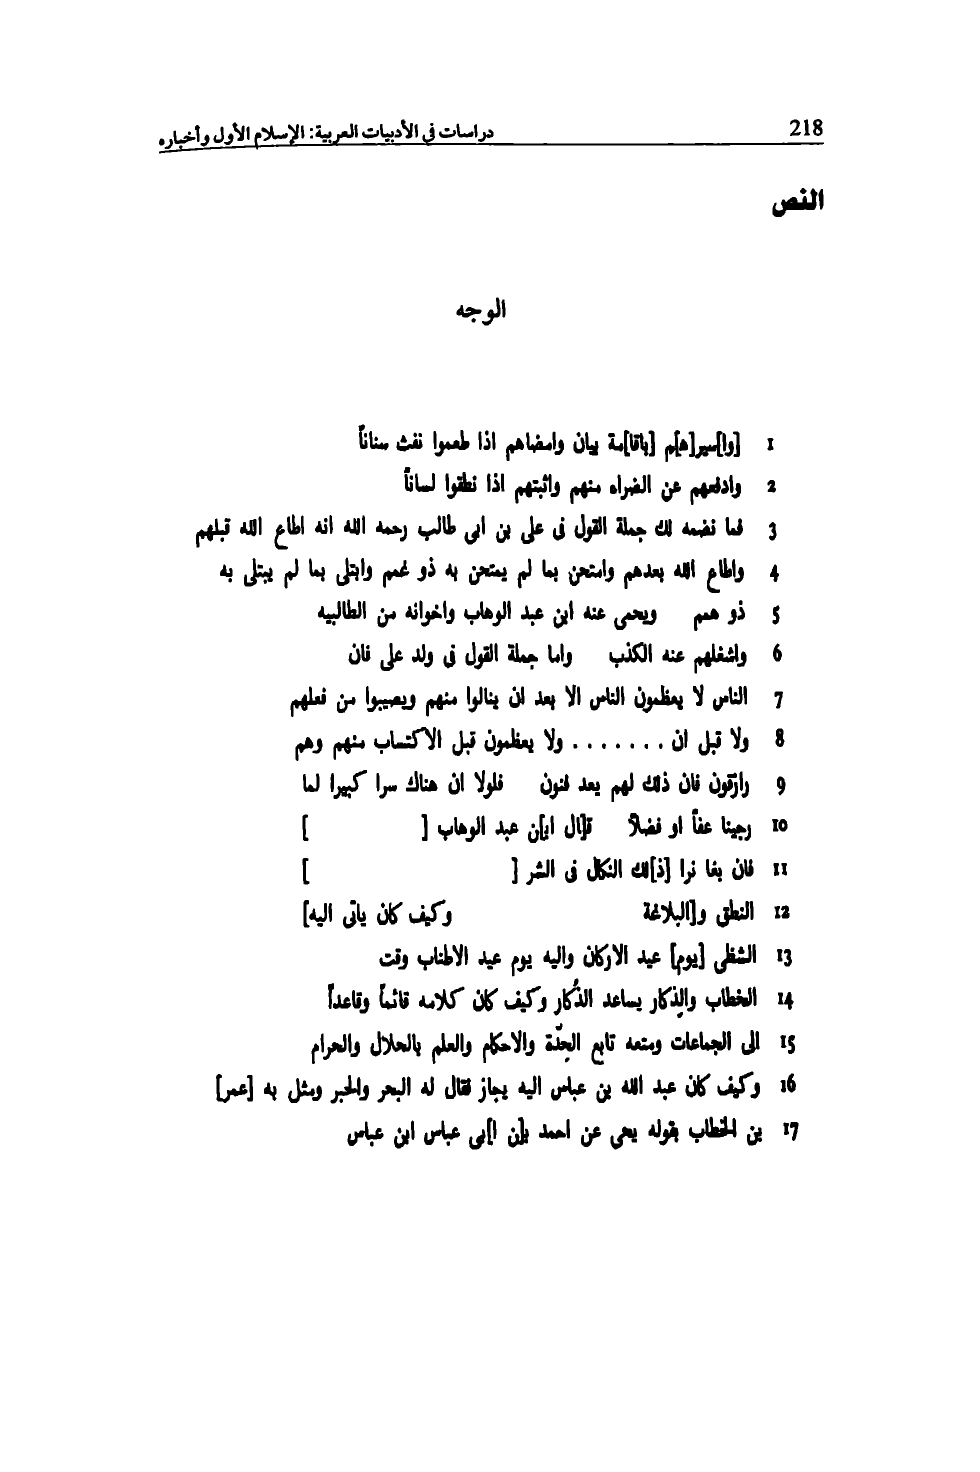 218 دراسات في الأدبيات العربية: الإسلام الأول وأخباره
النص
الوجه
1 [وا]سير[ه]م [باقا]مة بيان وامضاهم اذا طعموا نفث سناناً
2 وادفعهم عن الضراء منهم واثبتهم اذا نطقوا لساناً
3 فما نضمه لك جملة القول فى على بن ابى طالب رحمه الله انه اطاع الله قبلهم
4 واطاع الله بعدهم وامتحن بما لم يمتحن به ذو غمم وابتلى بما لم يبتلى به
5 ذو همم ويحمى عنه ابن عبد الوهاب واخوانه من الطالبيه
6 واشغلهم عنه الكذب واما جملة القول فى ولد على فان
7 الناس لا يعظمون الناس الا بعد ان ينالوا منهم ويصيبوا من فعلهم
8 ولا قبل ان . . . . . . . ولا يعظمون قبل الاكتساب منهم وهم
9 وازقون فان ذلك لهم يعد فنون فلولا ان هناك سرا كبيرا لما
10 رجينا عفاً او فضلاً ق[ا]ل اب[ن] عبد الوهاب [ ]
11 فان بغا نرا [ذ]لك النكال فى الشر [ ]
12 النطق و[ا]لبلاغة وكيف كان ياتى اليه]
13 الشظى [يوم] عيد الاركان واليه يوم عيد الاطناب وقت
14 الخطاب والذكار يساعد الذُكار وكيف كان كلامه قائماً وقاعداً
15 الى الجماعات ومتعه تابع الجدّة والاحكام والعلم بالحلال والحرام
16 وكيف كان عبد الله بن عباس اليه يجاز فقال له البحر والحبر ومثل به [عمر]
17 بن الخطاب بقوله يحي عن احمد ب[ن ا]بى عباس ابن عباس